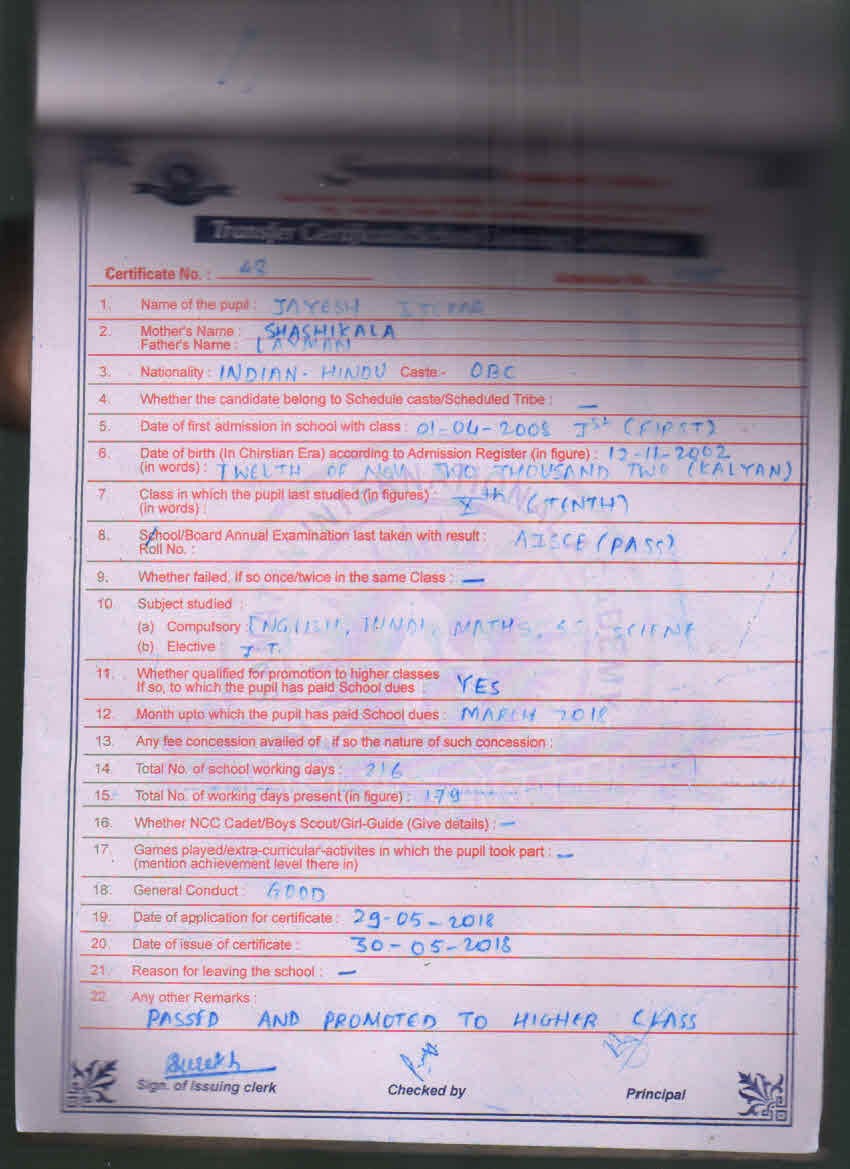 Transfer Certificate/School Leaving Certificate
Certificate No. : 48
1. Name of the pupil : JAYESH
2. Mother's Name : SHASHIKALA
Father's Name : LAXMAN
3. Nationality : INDIAN - HINDU Caste- OBC
4. Whether the candidate belong to Schedule caste/Scheduled Tribe : —
5. Date of first admission in school with class : 01-04-2008 Ist (FIRST)
6. Date of birth (In Chirstian Era) according to Admission Register (in figure) : 12-11-2002
(in words) : TWELTH OF NOV TWO THOUSAND TWO (KALYAN)
7. Class in which the pupil last studied (in figures) : Xth (TENTH)
(in words) :
8. School/Board Annual Examination last taken with result : AISCE (PASS)
Roll No. :
9. Whether failed, if so once/twice in the same Class : —
10 Subject studied :
(a) Compulsory : ENGLISH, HINDI, MATHS, SS,
(b) Elective : I.T.
11. Whether qualified for promotion to higher classes
If so, to which the pupil has paid School dues : YES
12. Month upto which the pupil has paid School dues : MARCH 2018
13. Any fee concession availed of if so the nature of such concession :
14. Total No. of school working days : 216
15. Total No. of working days present (in figure) : 179
16. Whether NCC Cadet/Boys Scout/Girl-Guide (Give details) : —
17. Games played/extra-curricular-activites in which the pupil took part : —
(mention achievement level there in)
18. General Conduct : GOOD
19. Date of application for certificate : 29-05-2018
20. Date of issue of certificate : 30-05-2018
21. Reason for leaving the school : —
22. Any other Remarks :
PASSED AND PROMOTED TO HIGHER CLASS
Sign. of Issuing clerk Checked by Principal